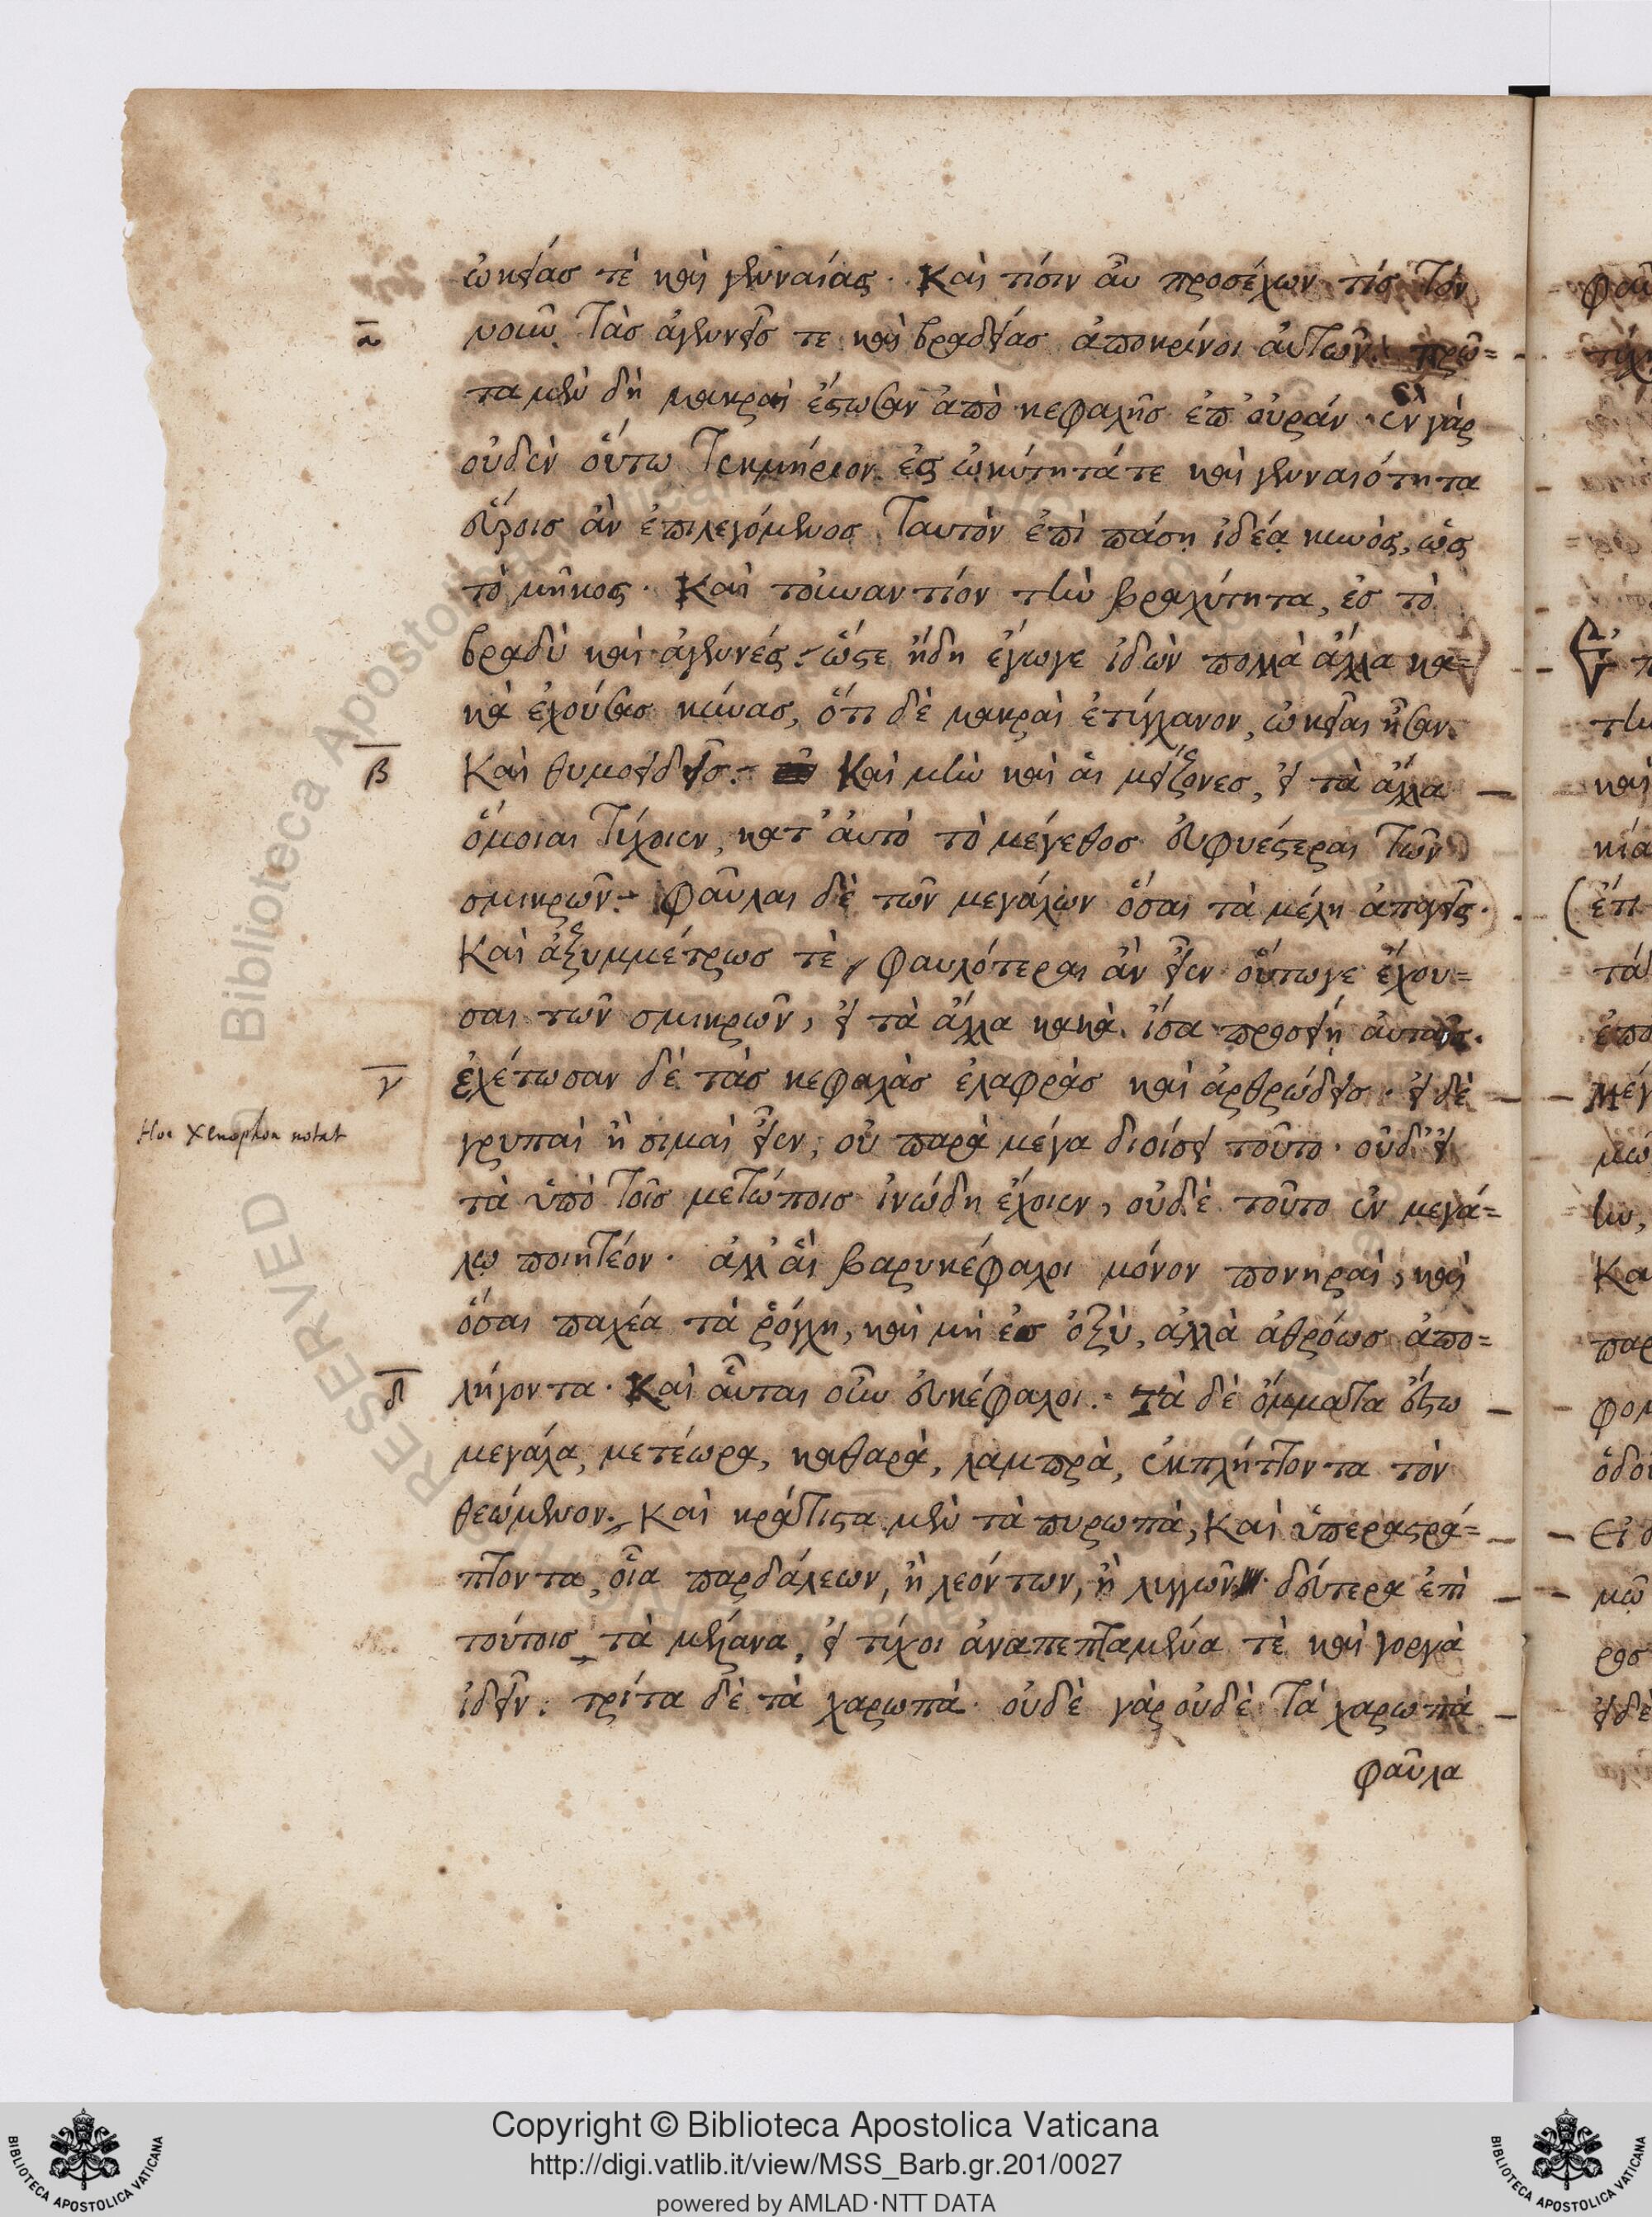 ὠκείας τὲ καὶ γενναίας. Καὶ τίσιν ἂν προσέχων τίς τὸν
α
νοῦν τὰς ἀγεννεῖς τε καὶ βραδείας ἀποκρίνοι αὐτῶν. πρῶ=
τα μὲν δὴ μακραὶ ἔστωσαν ἀπὸ κεφαλῆς ἐπ' οὐράν. ἓν γὰρ
οὐδὲν οὕτω τεκμήριον ἐς ὠκύτητά τε καὶ γενναιότητα
εὕροις ἂν ἐπιλεγόμενος ταυτὸν ἐπὶ πάσῃ ἰδέᾳ κυνός, ὡς
τὸ μῆκος. Καὶ τοὐναντίον τὴν βραχύτητα, ἐς τὸ
βραδὺ καὶ ἀγεννές. ὥστε ἤδη ἔγωγε ἰδὼν πολλὰ ἄλλα κα=
κὰ ἐχούσας κύνας, ὅτι δὲ μακραὶ ἐτύγχανον, ὠκεῖαι ἦσαν
β
Καὶ θυμοειδεῖς. Καὶ μὴν καὶ αἱ μείζονες, εἰ τὰ ἄλλα
ὅμοιαι τύχοιεν, κατ' αὐτὸ τὸ μέγεθος εὐφυέστεραι τῶν
σμικρῶν. Φαῦλαι δὲ τῶν μεγάλων ὅσαι τὰ μέλη ἀπαγεῖς.
Καὶ ἀξυμμέτρως τὲ, φαυλότεραι ἂν εἶεν οὕτωγε ἔχου=
σαι τῶν σμικρῶν, εἰ τὰ ἄλλα κακὰ ἴσα προσείη αὐταῖς.
γ
ἐχέτωσαν δὲ τὰς κεφαλὰς ἐλαφρὰς καὶ ἀρθρώδεις. εἰ δὲ
Hoc Xenophon notat
γρυπαὶ ἢ σιμαὶ εἶεν, οὐ παρὰ μέγα διοίσει τοῦτο. οὐδ' εἰ
τὰ ὑπὸ τοῖς μετώποις ἰνώδη ἔχοιεν, οὐδὲ τοῦτο ἐν μεγά=
λῳ ποιητέον. ἀλλ' αἱ βαρυκέφαλοι μόνον πονηραὶ, καὶ
ὅσαι παχέα τὰ ῥόγχη, καὶ μὴ ἐς ὀξὺ, ἀλλὰ ἀθρόως ἀπο=
δ
λήγοντα. Καὶ αὗται οὖν εὐκέφαλοι. Τὰ δὲ ὄμματα ἔστω
μεγάλα, μετέωρα, καθαρὰ, λαμπρὰ, ἐκπλήττοντα τὸν
θεώμενον. Καὶ κράτιστα μὲν τὰ πυρωπὰ, Καὶ ὑπεραστρά=
πτοντα, οἷα παρδάλεων, ἢ λεόντων, ἢ λυγγῶν. δεύτερα ἐπὶ
τούτοις τὰ μέλανα, εἰ τύχοι ἀναπεπταμένα τὲ καὶ γοργὰ
ἰδεῖν. τρίτα δὲ τὰ χαρωπά. οὐδὲ γὰρ οὐδὲ τὰ χαρωπὰ
φαῦλα
RESERVED
Biblioteca Apostolica Vaticana
Copyright © Biblioteca Apostolica Vaticana
http://digi.vatlib.it/view/MSS_Barb.gr.201/0027
powered by AMLAD·NTT DATA
BIBLIOTECA APOSTOLICA VATICANA
BIBLIOTECA APOSTOLICA VATICANA